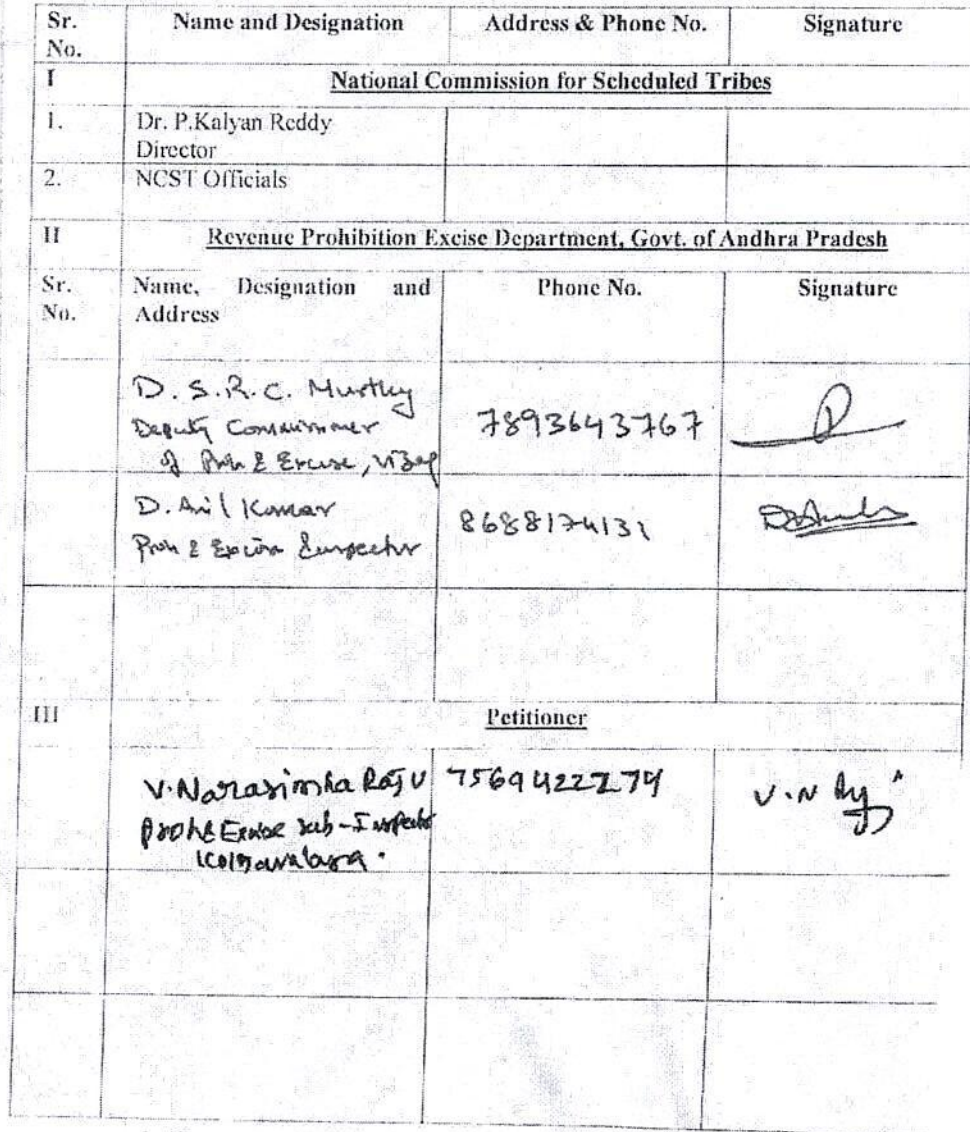 Sr. No. Name and Designation Address & Phone No. Signature
I National Commission for Scheduled Tribes
1. Dr. P.Kalyan Reddy
Director
2. NCST Officials
II Revenue Prohibition Excise Department, Govt. of Andhra Pradesh
Sr. No. Name, Designation and Address Phone No. Signature
D. S. R. C. Murthy 7893643767
Deputy Commissioner
of Proh & Excise, Vizag
D. Anil Kumar 8688174131
Proh & Excise Inspector
III Petitioner
V. Narasimha Raju
Proh & Excise Sub-Inspector
V.N